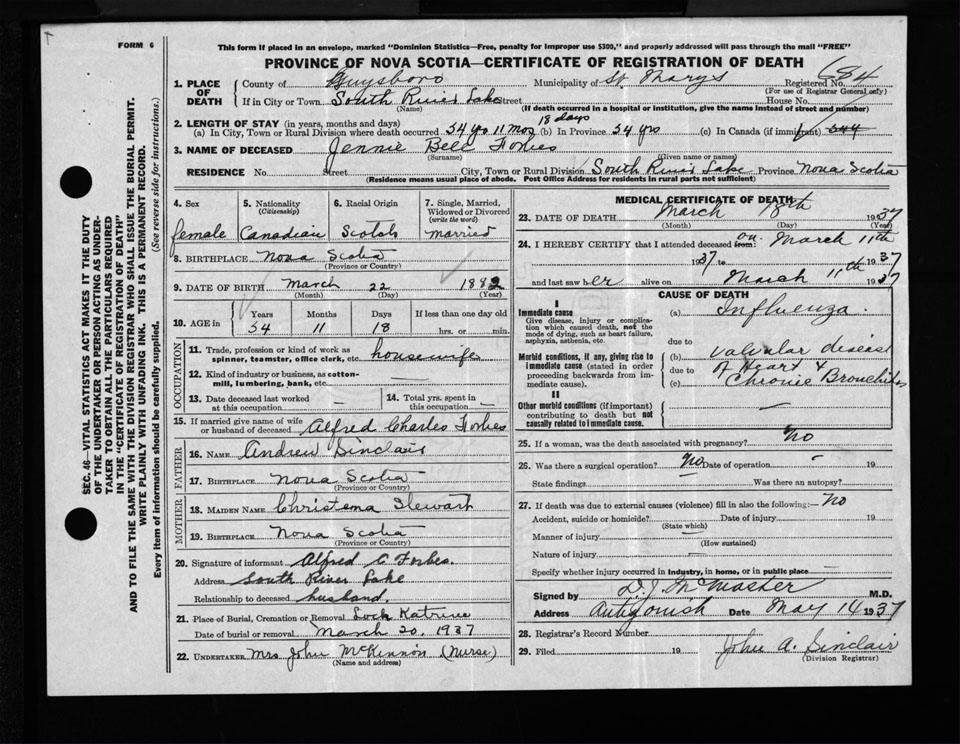 FORM 6
This form if placed in an envelope, marked "Dominion Statistics—Free, penalty for improper use $300," and properly addressed will pass through the mail "FREE"
PROVINCE OF NOVA SCOTIA—CERTIFICATE OF REGISTRATION OF DEATH
1. PLACE OF DEATH County of Guysboro Municipality of St Marys Registered No. 684
(For use of Registrar General only)
If in City or Town South River Lake Street House No.
(Name) (If death occurred in a hospital or institution, give the name instead of street and number)
2. LENGTH OF STAY (in years, months and days) 18 days
(a) In City, Town or Rural Division where death occurred 54 yrs 11 Mos (b) In Province 54 yrs (c) In Canada (if immigrant)
3. NAME OF DECEASED Jennie Bell Forbes
(Surname) (Given name or names)
RESIDENCE No. Street City, Town or Rural Division South River Lake Province Nova Scotia
(Residence means usual place of abode. Post Office Address for residents in rural parts not sufficient)
4. Sex
female
5. Nationality
(Citizenship)
Canadian
6. Racial Origin
Scotch
7. Single, Married, Widowed or Divorced
(write the word)
married
8. BIRTHPLACE Nova Scotia
(Province or Country)
9. DATE OF BIRTH March 22 1882
(Month) (Day) (Year)
10. AGE in Years Months Days If less than one day old
54 11 18 hrs. or min.
OCCUPATION
11. Trade, profession or kind of work as spinner, teamster, office clerk, etc. housewife
12. Kind of industry or business, as cotton-mill, lumbering, bank, etc. —
13. Date deceased last worked at this occupation —
14. Total yrs. spent in this occupation —
15. If married give name of wife or husband of deceased Alfred Charles Forbes
FATHER
16. NAME Andrew Sinclair
17. BIRTHPLACE Nova Scotia
(Province or Country)
MOTHER
18. MAIDEN NAME Christena Stewart
19. BIRTHPLACE Nova Scotia
(Province or Country)
20. Signature of informant Alfred C Forbes.
Address South River Lake
Relationship to deceased husband.
21. Place of Burial, Cremation or Removal Lock Katrine
Date of burial or removal March 20, 1937
22. UNDERTAKER Mrs John McKinnon (Nurse)
(Name and address)
MEDICAL CERTIFICATE OF DEATH
23. DATE OF DEATH March 18th 1937
(Month) (Day) (Year)
24. I HEREBY CERTIFY that I attended deceased from: on March 11th
1937 to 1937
and last saw her alive on March 11th 1937
CAUSE OF DEATH
I
Immediate cause
Give disease, injury or complication which caused death, not the mode of dying, such as heart failure, asphyxia, asthenia, etc.
(a) Influenza.
due to
Morbid conditions, if any, giving rise to immediate cause (stated in order proceeding backwards from immediate cause).
(b) valvular disease
due to of Heart &
(c) Chronic Bronchitis
II
Other morbid conditions (if important) contributing to death but not causally related to immediate cause. —
25. If a woman, was the death associated with pregnancy? No
26. Was there a surgical operation? No Date of operation - 19
State findings Was there an autopsy?
27. If death was due to external causes (violence) fill in also the following:— No
Accident, suicide or homicide? Date of injury 19
(State which)
Manner of injury
(How sustained)
Nature of injury
Specify whether injury occurred in industry, in home, or in public place —
Signed by D. J. McMaster M.D.
Address Antigonish Date May 14 1937
28. Registrar's Record Number
29. Filed 19 John A. Sinclair
(Division Registrar)
SEC. 46—VITAL STATISTICS ACT MAKES IT THE DUTY
OF THE UNDERTAKER OR PERSON ACTING AS UNDER-
TAKER TO OBTAIN ALL THE PARTICULARS REQUIRED
IN THE "CERTIFICATE OF REGISTRATION OF DEATH"
AND TO FILE THE SAME WITH THE DIVISION REGISTRAR WHO SHALL ISSUE THE BURIAL PERMIT.
WRITE PLAINLY WITH UNFADING INK. THIS IS A PERMANENT RECORD.
Every item of information should be carefully supplied. (See reverse side for instructions.)